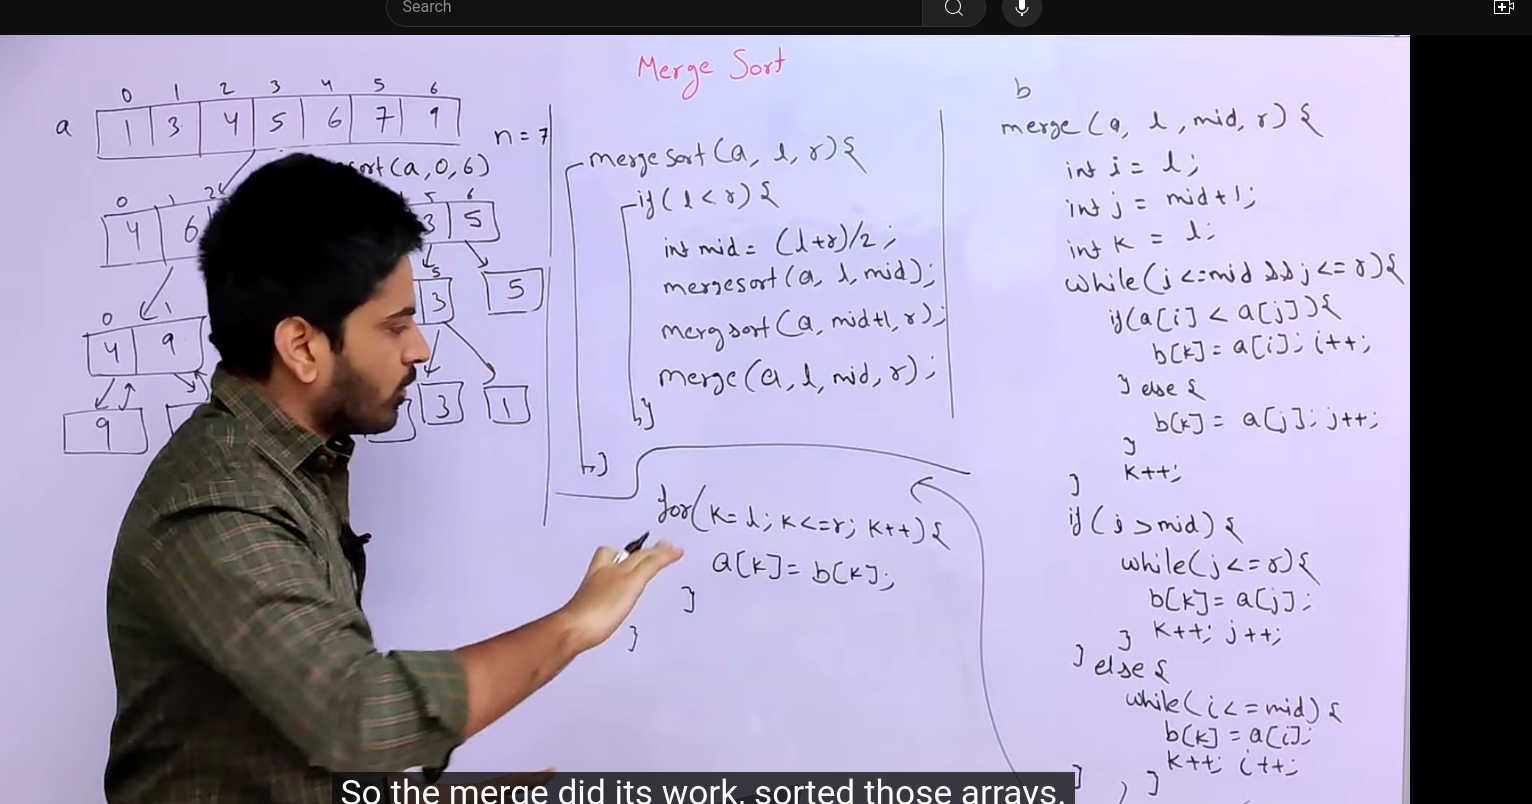 Search
Merge Sort
0 1 2 3 4 5 6
a 1 3 4 5 6 7 9
n = 7
sort(a,0,6)
0 1 2 5 6
4 6 3 5
5
0 1 3 5
4 9
9 3 1
mergesort(a, l, r){
if(l < r){
int mid = (l+r)/2;
mergesort(a, l, mid);
mergsort(a, mid+1, r);
merge(a, l, mid, r);
}
}
for(k=l; k<=r; k++){
a[k]= b[k];
}
}
b
merge(a, l, mid, r){
int i = l;
int j = mid+1;
int k = l;
while(i<=mid && j<=r){
if(a[i] < a[j]){
b[k]= a[i]; i++;
} else {
b[k]= a[j]; j++;
}
k++;
}
if(i>mid){
while(j<=r){
b[k]= a[j];
k++; j++;
}
} else {
while(i<=mid){
b[k]=a[i];
k++; i++;
}
}
So the merge did its work, sorted those arrays.